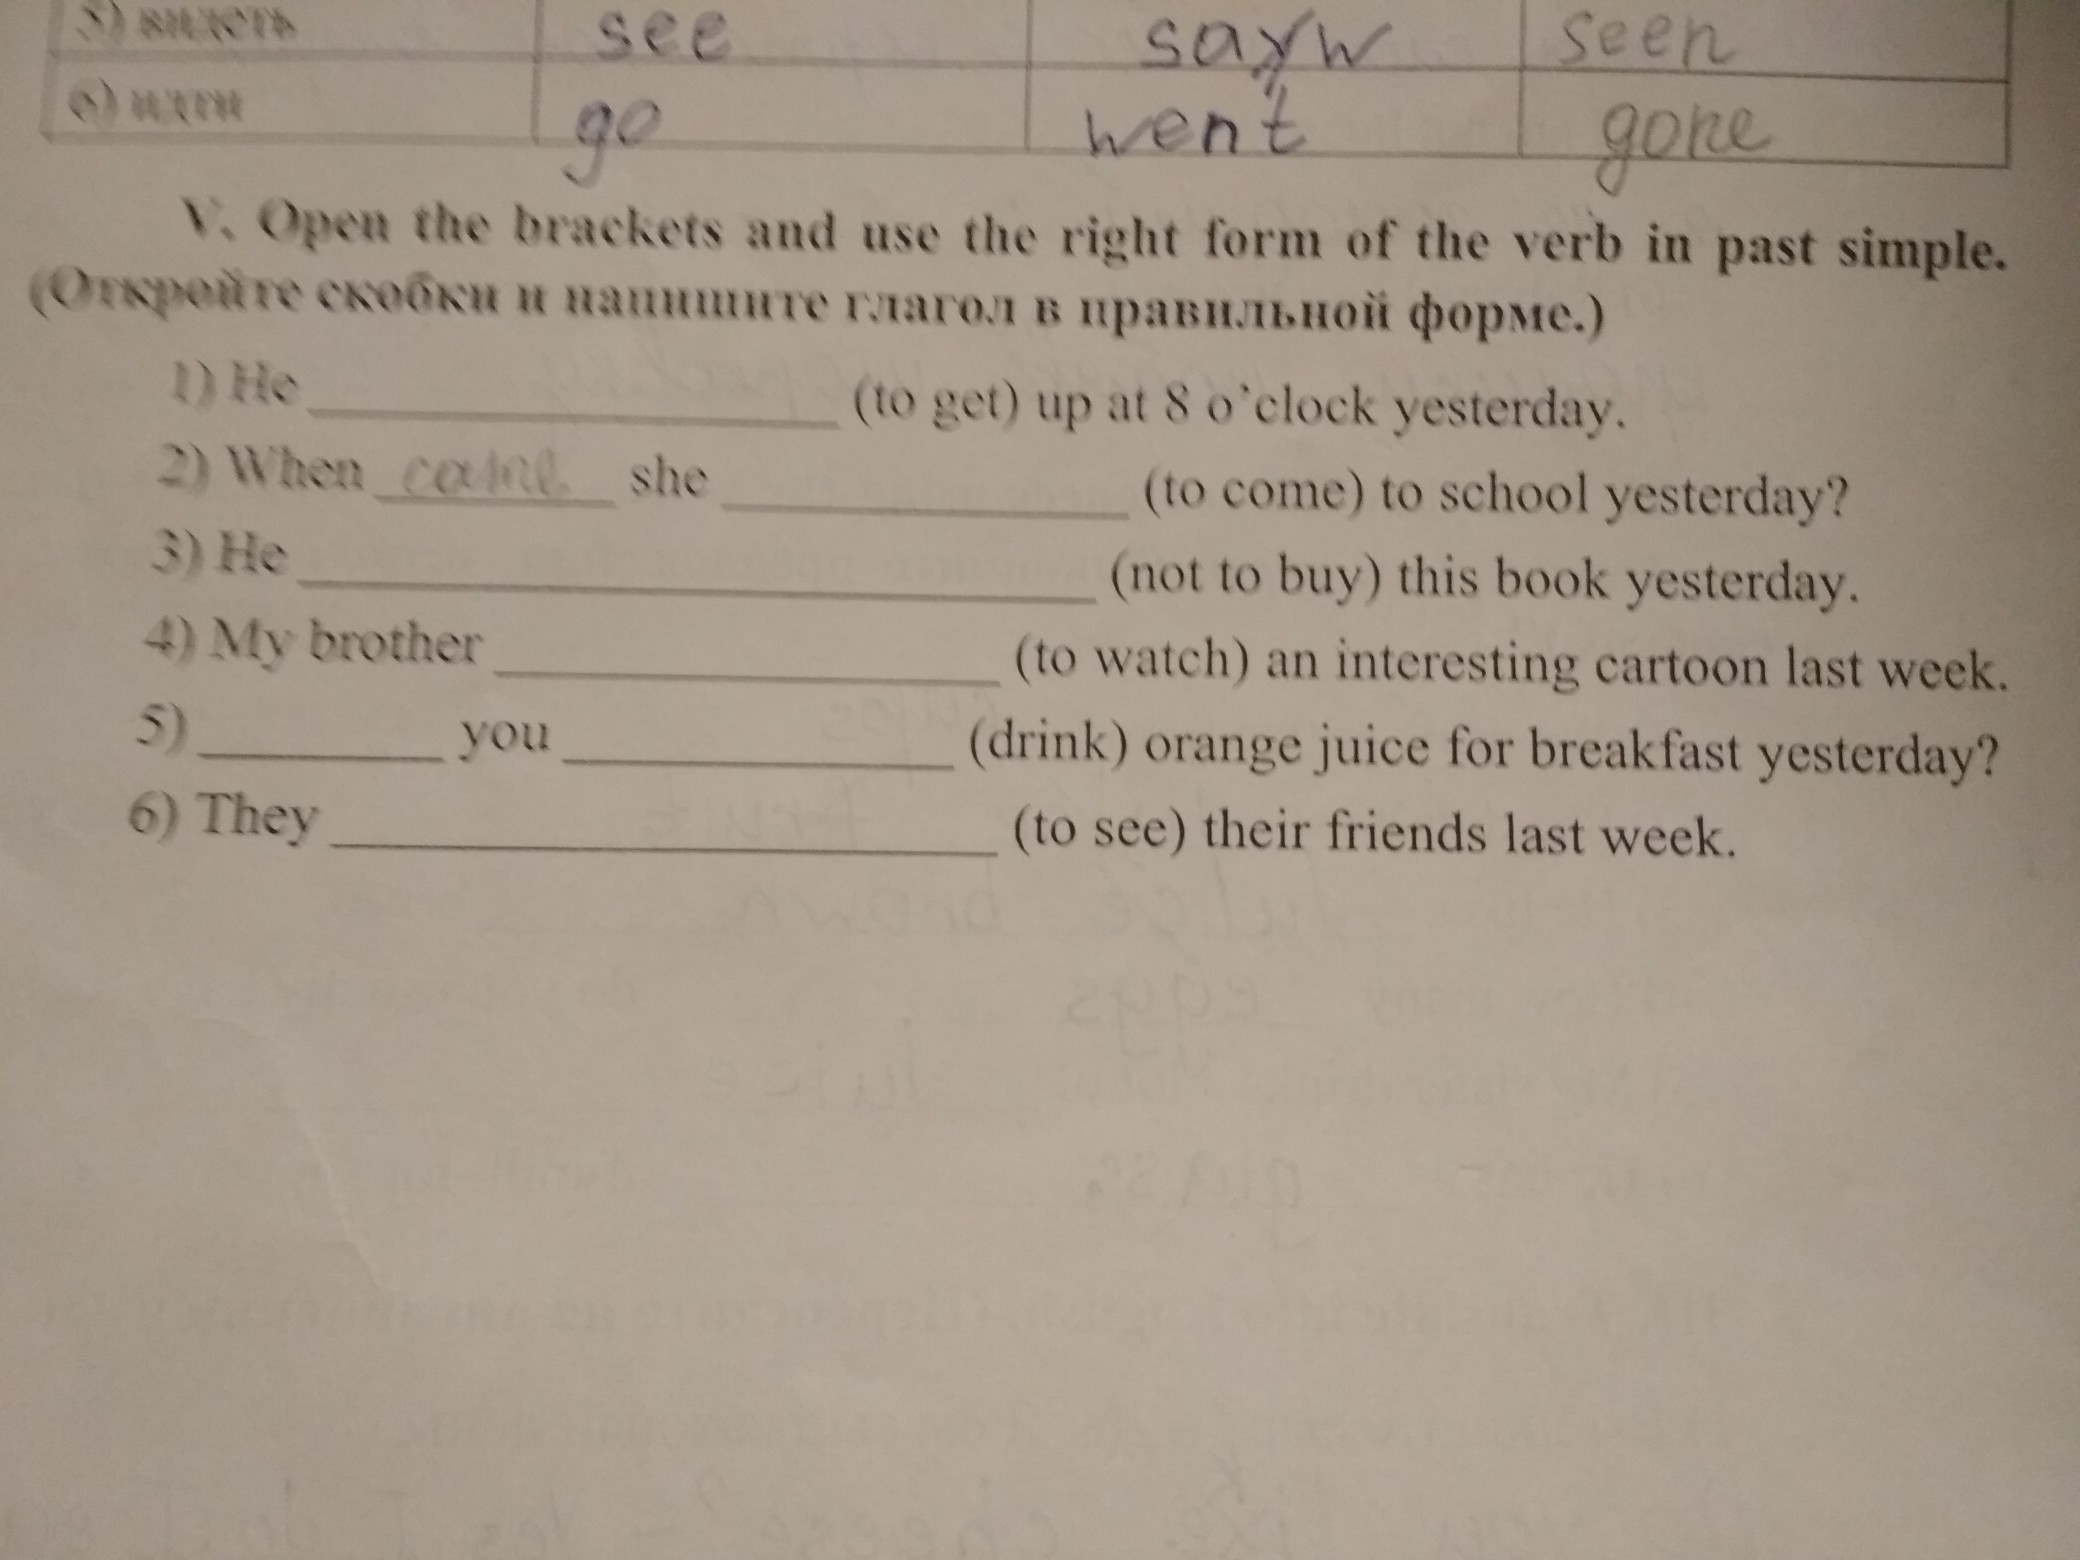 5) видеть see sayw seen
6) идти go went gone
V. Open the brackets and use the right form of the verb in past simple.
(Откройте скобки и напишите глагол в правильной форме.)
1) He ____________ (to get) up at 8 o'clock yesterday.
2) When came she ____________ (to come) to school yesterday?
3) He ____________ (not to buy) this book yesterday.
4) My brother ____________ (to watch) an interesting cartoon last week.
5) ______ you ____________ (drink) orange juice for breakfast yesterday?
6) They ____________ (to see) their friends last week.